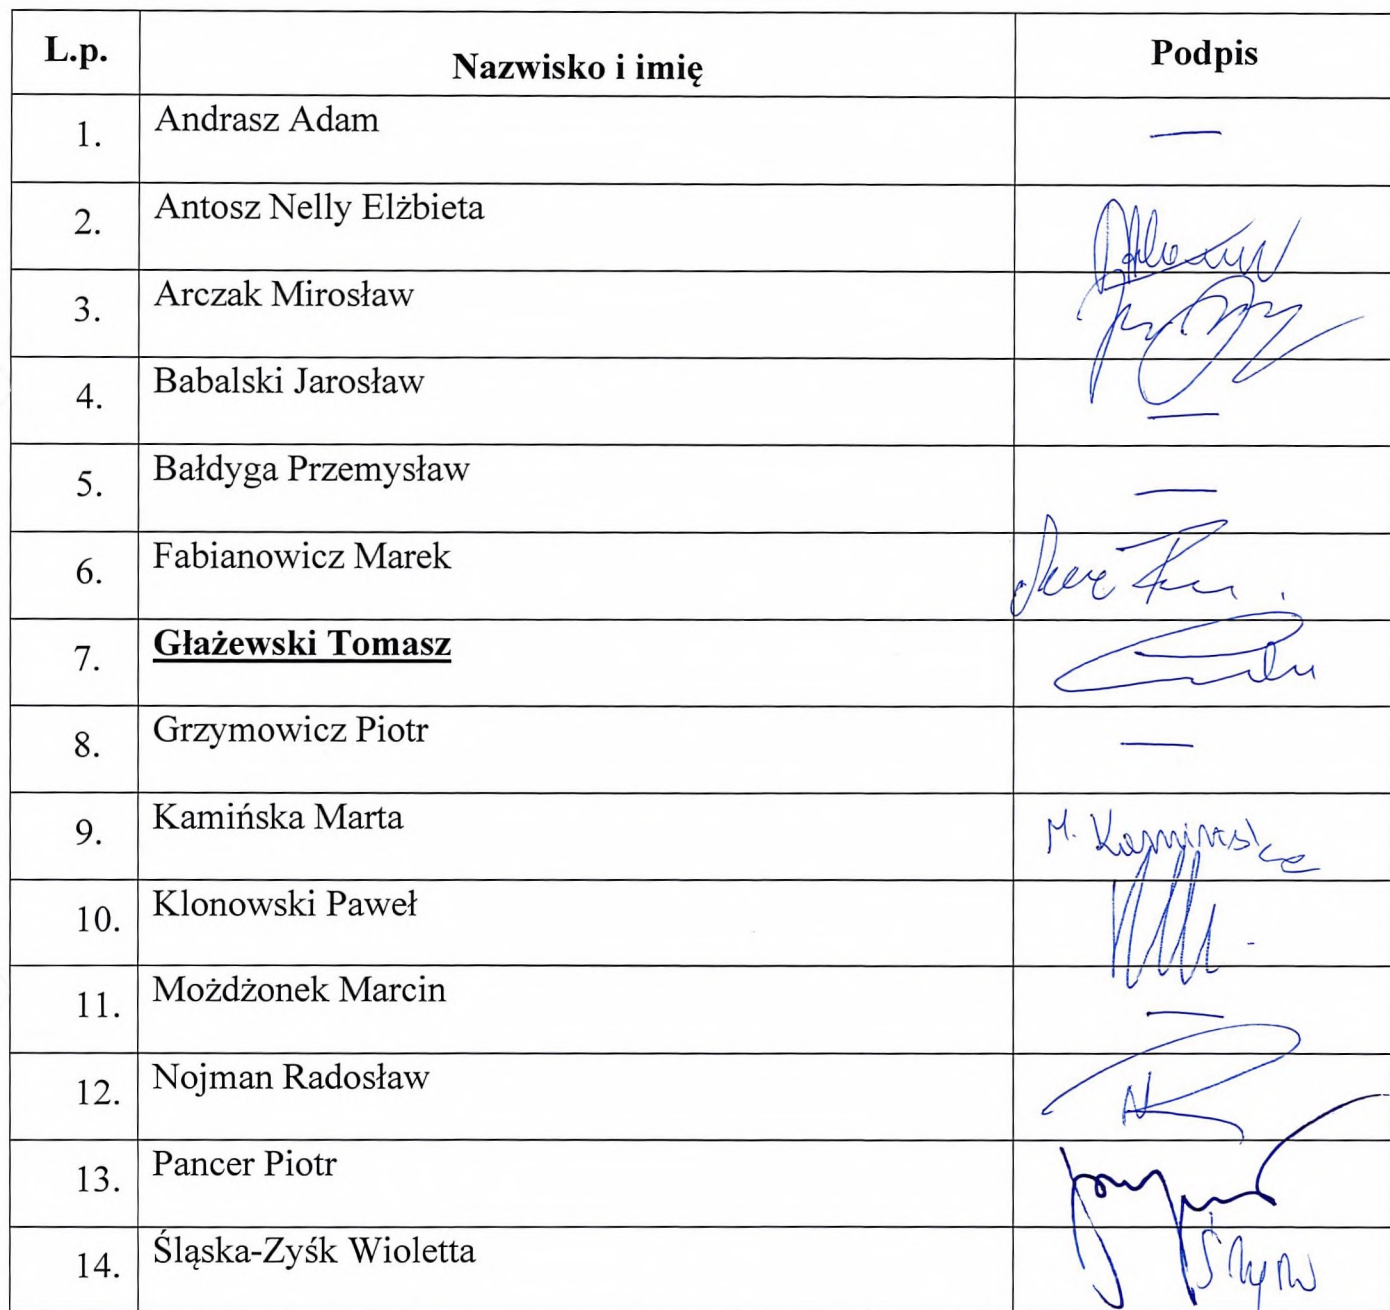 L.p. Nazwisko i imię Podpis
1. Andrasz Adam —
2. Antosz Nelly Elżbieta
3. Arczak Mirosław
4. Babalski Jarosław —
5. Bałdyga Przemysław —
6. Fabianowicz Marek
7. Głażewski Tomasz
8. Grzymowicz Piotr —
9. Kamińska Marta M. Kamińska
10. Klonowski Paweł
11. Możdżonek Marcin —
12. Nojman Radosław
13. Pancer Piotr
14. Śląska-Zyśk Wioletta